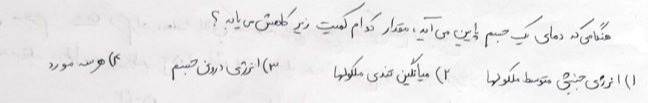 هنگامی که دمای یک جسم پایین می آید، مقدار کدام کمیت زیر کاهش می یابد ؟
۱) انرژی جنبشی متوسط ملکولها ۲) میانگین تندی ملکولها ۳) انرژی درونی جسم ۴) هر سه مورد